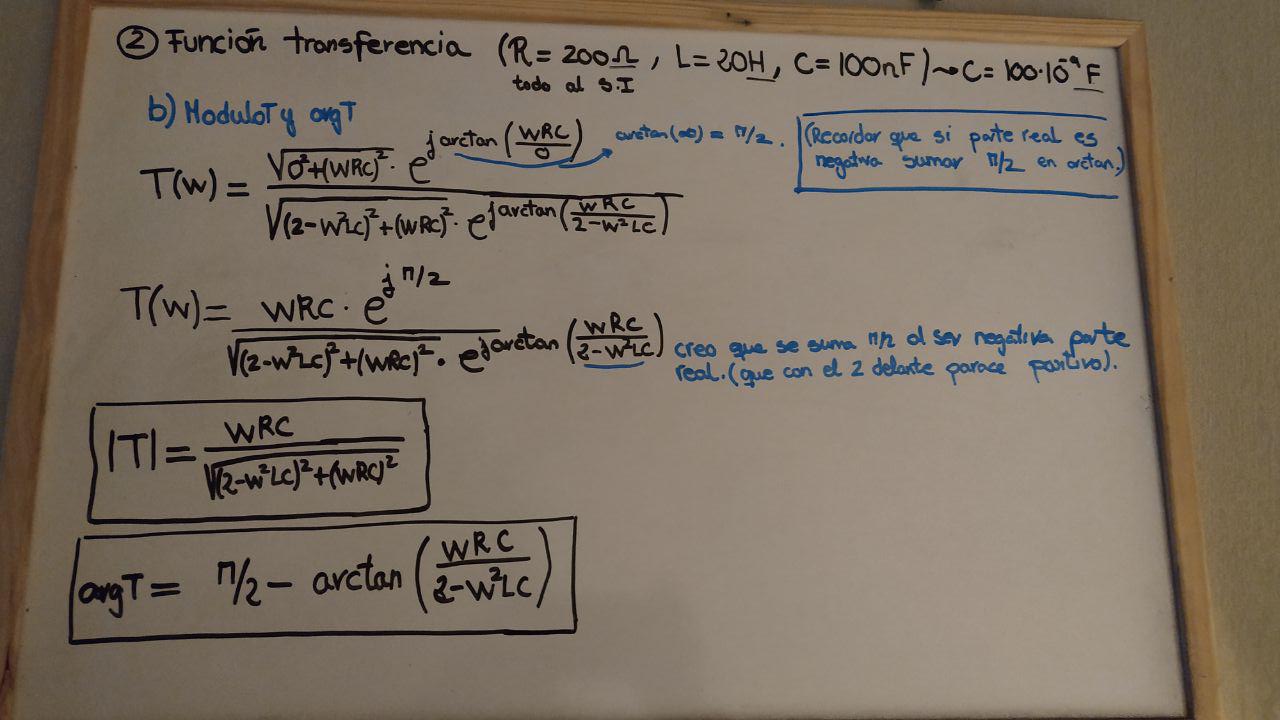 ② Función transferencia (R = 200Ω, L = 20H, C = 100nF) ~> C = 100·10⁻⁹ F
todo al S.I
b) ModuloT y argT
T(w) = √(0²+(WRC)²) · e^(j arctan(WRC/0)) / √((2-w²LC)²+(WRC)²) · e^(j arctan(WRC/(2-w²LC)))
arctan(∞) = π/2.
(Recordar que si parte real es
negativa sumar π/2 en arctan.)
T(w) = WRC · e^(j π/2) / √((2-w²LC)²+(WRC)²) · e^(j arctan(WRC/(2-w²LC)))
creo que se suma π/2 al ser negativa parte
real. (que con el 2 delante parace positivo).
|T| = WRC / √((2-w²LC)²+(WRC)²)
argT = π/2 - arctan(WRC/(2-w²LC))